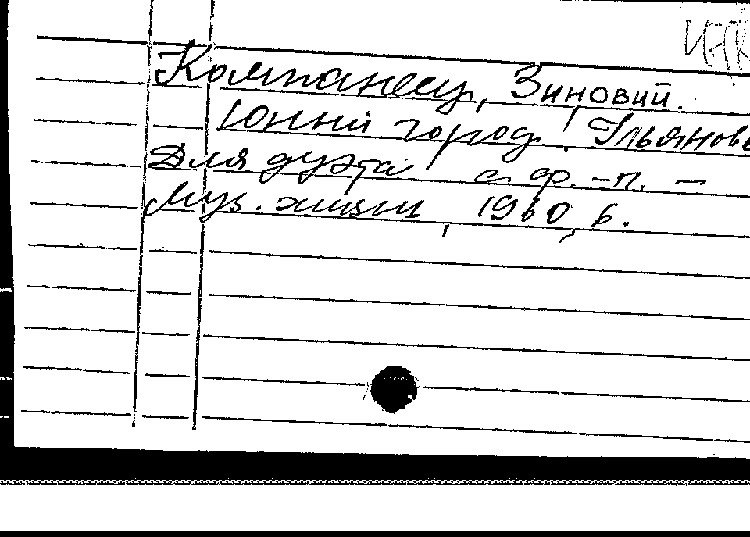 Компанеец, Зиновий.
Юный город. Ульянов
Для дуэта с ф.-п. –
Муз. жизни, 1960, 6.